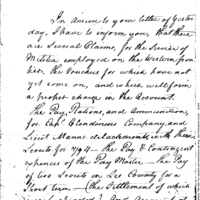 In Answer to your letter of Yester
day, I have to inform you, that there
are Several Claims, for the Service of
Militia employed on the Western fron
tier, the Vouchers for which have not
yet come on, and which will form
a proper charge in the Account.
The Pay, Rations, and Ammunition,
for Capt Clendinens Company, and
Lieut Manns detachments, with their
Scouts for 1794 — the Pay & Contingent
expences of the Pay Master — The Pay
of two Scouts in Lee County for a
Short term — (the Settlement of which